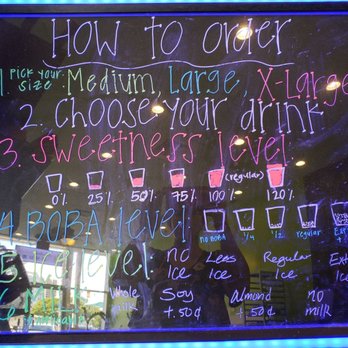 How to order
1. Pick your size · Medium, Large, X-Large
2. Choose your drink
3. Sweetness level:
(regular)
0% 25% 50% 75% 100% 120%
4. BOBA level:
no BOBA 1/4 1/2 regular
5. Ice level: no Ice Less Ice Regular Ice
Milk Whole milk Soy +.50¢ Almond +.50¢ no milk